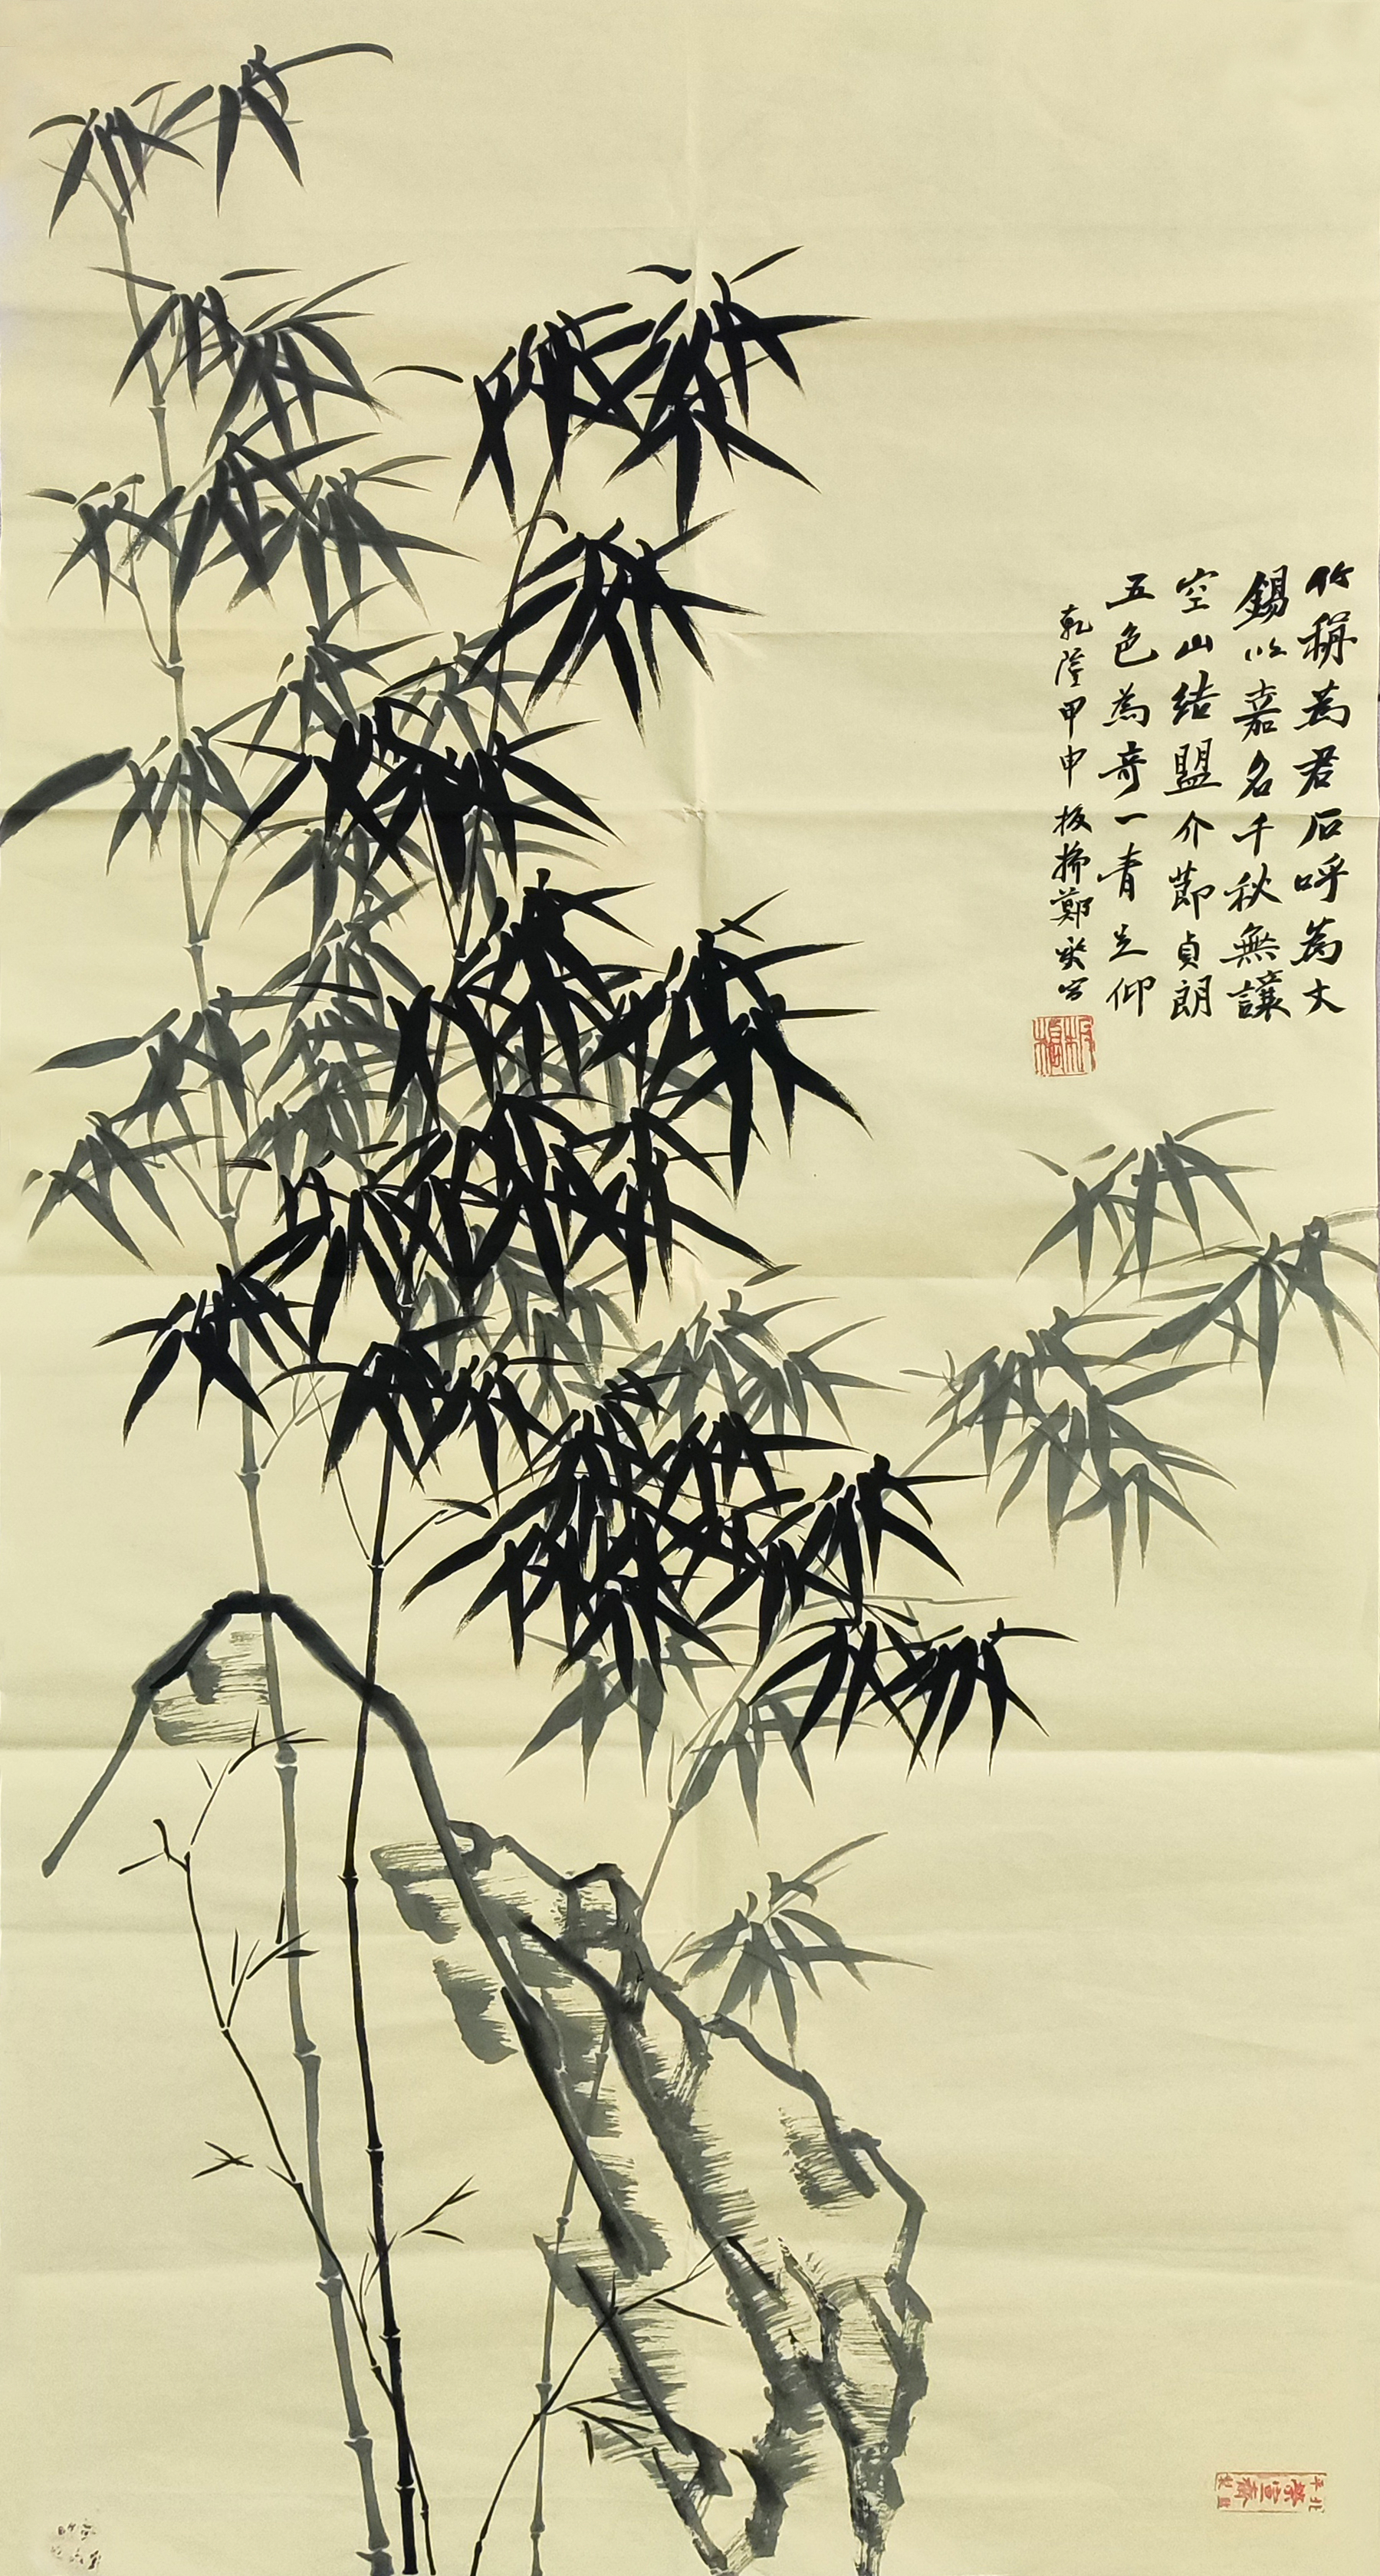 竹稱為君石呼為丈
錫以嘉名千秋無讓
空山結盟介節貞朗
五色為奇一青足仰
乾隆甲申板橋鄭燮寫
板橋
北平
榮寶齋